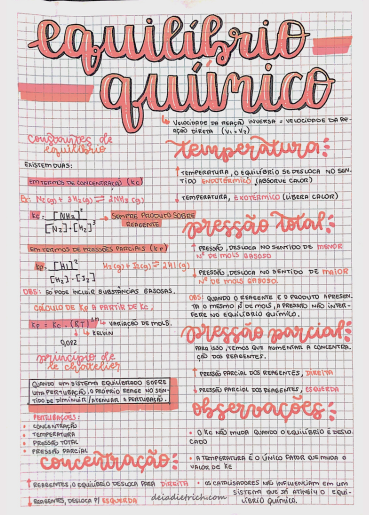 equilíbrio
químico
↳ VELOCIDADE DA REAÇÃO INVERSA = VELOCIDADE DA RE-
AÇÃO DIRETA (V1 = V2)
constantes de
equilíbrio
EXISTEM DUAS:
EM TERMOS DE CONCENTRAÇÃO (Kc)
Ex: N2(g) + 3H2(g) ⇌ 2NH3(g)
Kc = [NH3]² / [N2]·[H2]³ → SEMPRE PRODUTO SOBRE
REAGENTE
EM TERMOS DE PRESSÕES PARCIAIS (Kp)
Kp = [HI]² / [H2]·[I2]
H2(g) + I2(g) ⇌ 2HI(g)
OBS: SÓ PODE INCLUIR SUBSTÂNCIAS GASOSAS.
CÁLCULO DE Kp A PARTIR DE Kc.
Kp = Kc · (RT)^Δn → VARIAÇÃO DE MOLS.
↳ KELVIN
0,082
princípio de
le chatelier
QUANDO UM SISTEMA EQUILIBRADO SOFRE
UMA PERTURBAÇÃO, O PRÓPRIO REAGE NO SEN-
TIDO DE DIMINUIR/ATENUAR A PERTURBAÇÃO.
PERTURBAÇÕES:
• CONCENTRAÇÃO
• TEMPERATURA
• PRESSÃO TOTAL
• PRESSÃO PARCIAL
concentração:
↑ REAGENTES, O EQUILÍBRIO DESLOCA PARA DIREITA
↓ REAGENTES, DESLOCA P/ ESQUERDA
temperatura:
↑ TEMPERATURA, O EQUILÍBRIO SE DESLOCA NO SEN-
TIDO ENDOTÉRMICO (ABSORVE CALOR)
↓ TEMPERATURA, EXOTÉRMICO (LIBERA CALOR)
pressão total:
↑ PRESSÃO, DESLOCA NO SENTIDO DE MENOR
Nº DE MOLS GASOSO
↓ PRESSÃO, DESLOCA NO SENTIDO DE MAIOR
Nº DE MOLS GASOSO
OBS: QUANDO O REAGENTE E O PRODUTO APRESEN-
TA O MESMO Nº DE MOLS, A PRESSÃO NÃO INTER-
FERE NO EQUILÍBRIO QUÍMICO.
pressão parcial:
PARA ISSO, TEMOS QUE AUMENTAR A CONCENTRA-
ÇÃO DOS REAGENTES.
↑ PRESSÃO PARCIAL DOS REAGENTES, DIREITA
↓ PRESSÃO PARCIAL DOS REAGENTES, ESQUERDA
observações:
• O Kc NÃO MUDA QUANDO O EQUILÍBRIO É DESLO-
CADO
• A TEMPERATURA É O ÚNICO FATOR QUE MUDA O
VALOR DE Kc
• OS CATALISADORES NÃO INFLUENCIAM EM UM
SISTEMA QUE JÁ ATINGIU O EQUI-
LÍBRIO QUÍMICO.
deiadietrich.com